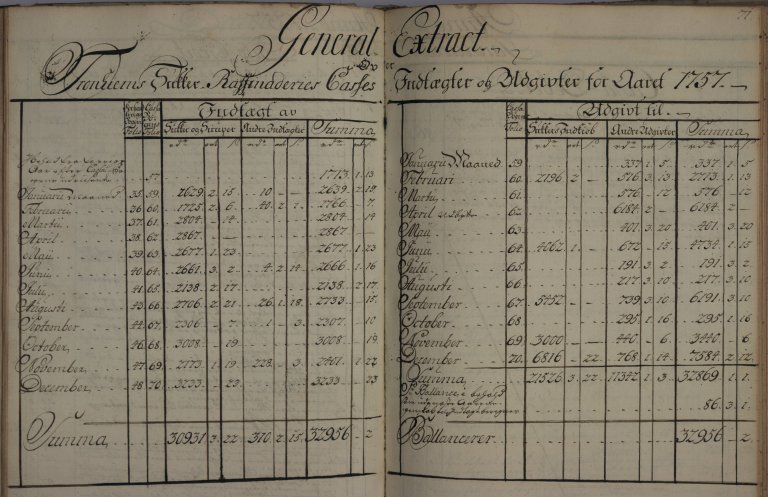 77
General Extract
Over
Tronhiems Sukker Raffinaderies Casses Indtægter og Udgivter for Aaret 1757.
Indtægt av
Sukker og Sirruper Andre Indtægter Summa
57. 1713. 1. 13
Januarii Maaned 35. 59. 2629. 2. 15. 10 2639. 2. 15
Februarii 36. 60. 1725. 2. 6. 40. 2. 1. 1766. 7.
Martii 37. 61. 2804. 14 2804. 14
April 38. 62. 2867. 2867.
Maii 39. 63. 2677. 1. 23. 2677. 1. 23
Junii 40. 64. 2661. 3. 2. 4. 2. 14. 2666. 1. 16
Julii 41. 65. 2138. 2. 17. 2138. 2. 17
Augusti 43. 66. 2706. 2. 21. 26. 1. 18. 2733. 15.
September 44. 67. 2306. 7. 1. 3. 2307. 10
October 46. 68. 3008. 19. 3008. 19
November 47. 69. 2173. 1. 19. 228. 3. 2401. 1. 22
December 48. 70. 3233. 23. 3233. 23
Summa 30931. 3. 22. 310. 2. 15. 32956. 2
Udgivt til
Sukkers Indkiøb Andre Udgivter Summa
Januarii Maaned 59. 337. 1. 5. 337. 1. 5
Februari 60. 2196. 2. 516. 3. 13. 2713. 1. 13
Martii 61. 576. 12. 576. 12
April 62. 6184. 2. 6184. 2
Maii 63. 401. 3. 20. 401. 3. 20
Junii 64. 4062. 1. 672. 15. 4734. 1. 15
Julii 65. 191. 3. 2. 191. 3. 2
Augusti 66. 217. 3. 10. 217. 3. 10
September 67. 5452. 739. 3. 10. 6191. 3. 10
October 68. 295. 1. 16. 295. 1. 16
November 69. 3000. 440. 6. 3440. 6
December 70. 6816. 22. 768. 1. 14. 7584. 2. 12
Summa 21526. 3. 22. 11342. 1. 3. 32869. 1. 1.
86. 3. 1.
Ballancerer 32956. 2